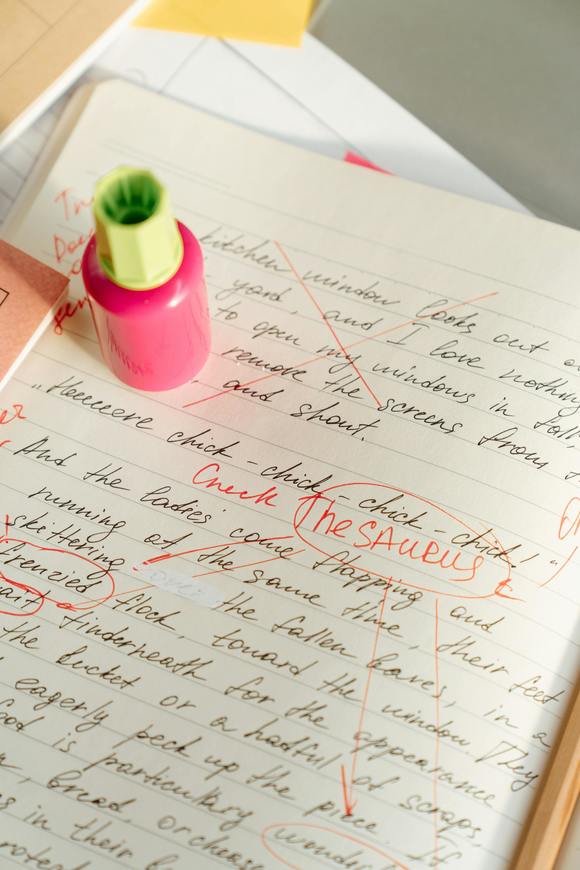 kitchen window looks out o
yard, and I love nothing
to open my windows in fall,
remove the screens from
and shout.
„Heeeeere chick - chick - chick - chick!"
Check Thesaurus
And the ladies come flapping and
running at the same time, their feet
skittering over the fallen leaves, in a
frenzied flock, toward the window. They
underneath for the appearance
the bucket or a handful of scraps,
eagerly peck up the piece. If
food is particularly wonder
bread, or cheese
s in their b